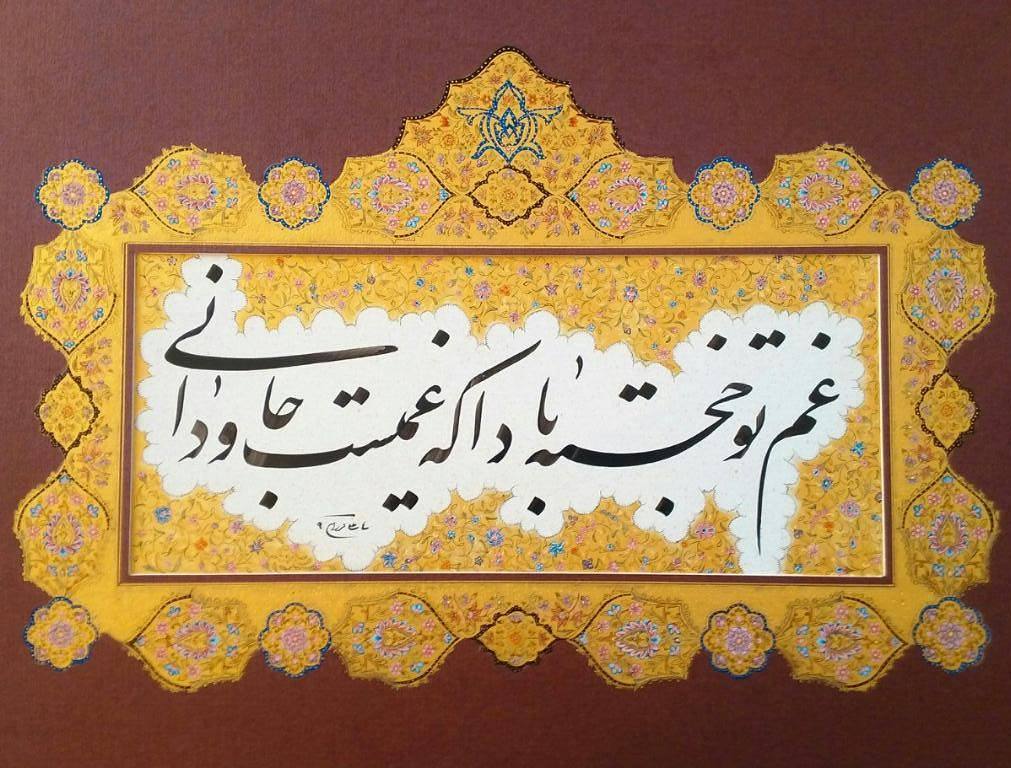 غم تو خجسته بادا که غمیست جاودانی